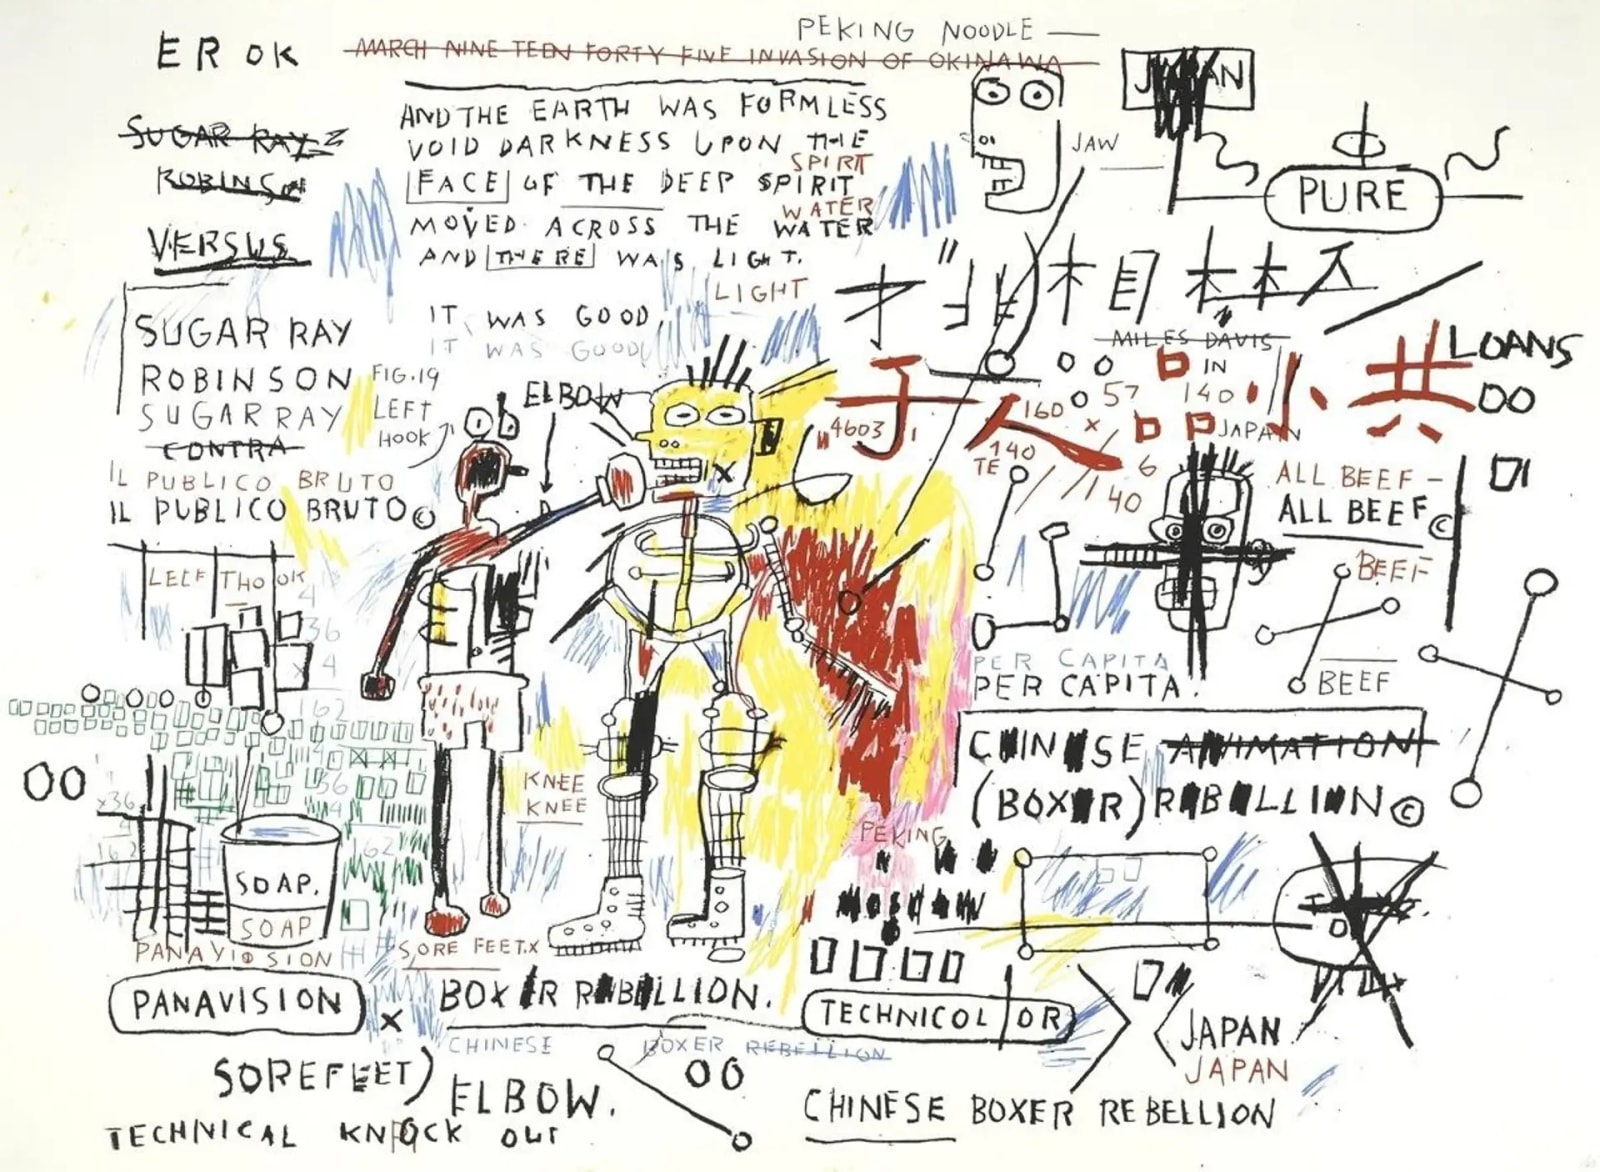 PEKING NOODLE —
EROK
MARCH NINE TEEN FORTY FIVE INVASION OF OKINAWA
SUGAR RAY
ROBINSON
VERSUS
AND THE EARTH WAS FORMLESS
VOID DARKNESS UPON THE
SPIRIT
FACE OF THE DEEP SPIRIT
WATER
MOVED ACROSS THE WATER
AND THERE WAS LIGHT.
LIGHT
IT WAS GOOD
IT WAS GOOD
JAPAN
JAW
PURE
SUGAR RAY
ROBINSON
SUGAR RAY
CONTRA
IL PUBLICO BRUTO
IL PUBLICO BRUTO©
FIG.19
LEFT
HOOK
ELBOW
MILES DAVIS
IN
140
JAPAN
LOANS
OO
子人品小共
"4603"
160
57
×
140
TE
6
40
ALL BEEF –
ALL BEEF©
BEEF
BEEF
36
4
162
36
PER CAPITA
PER CAPITA.
CHINESE ANIMATION
(BOXER) REBELLION©
OO
x36
162
62
KNEE
KNEE
PEKING
MOSCOW
SOAP.
SOAP
SORE FEET.X
PANAVISION
X
BOXER REBELLION.
TECHNICOLOR
JAPAN
JAPAN
CHINESE BOXER REBELLION
SOREFEET)
ELBOW.
OO
CHINESE BOXER REBELLION
TECHNICAL KNOCK OUT